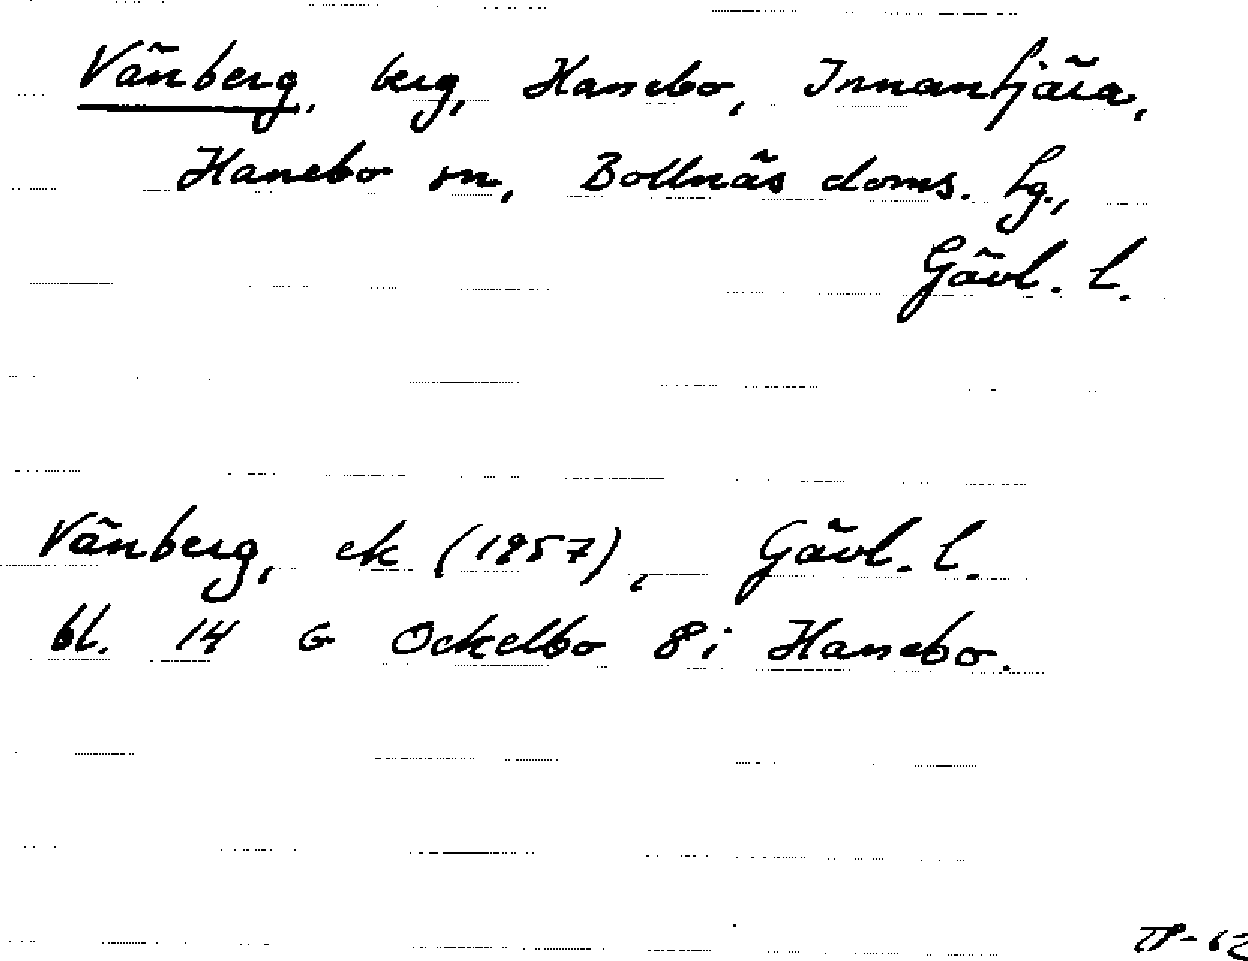 Vänberg, berg, Hanebo, Innanfjära,
Hanebo sn, Bollnäs doms. hg.,
Gävl. l.
Vänberg, ek (1957), Gävl. l.
bl. 14 G Ockelbo 8 i Hanebo.